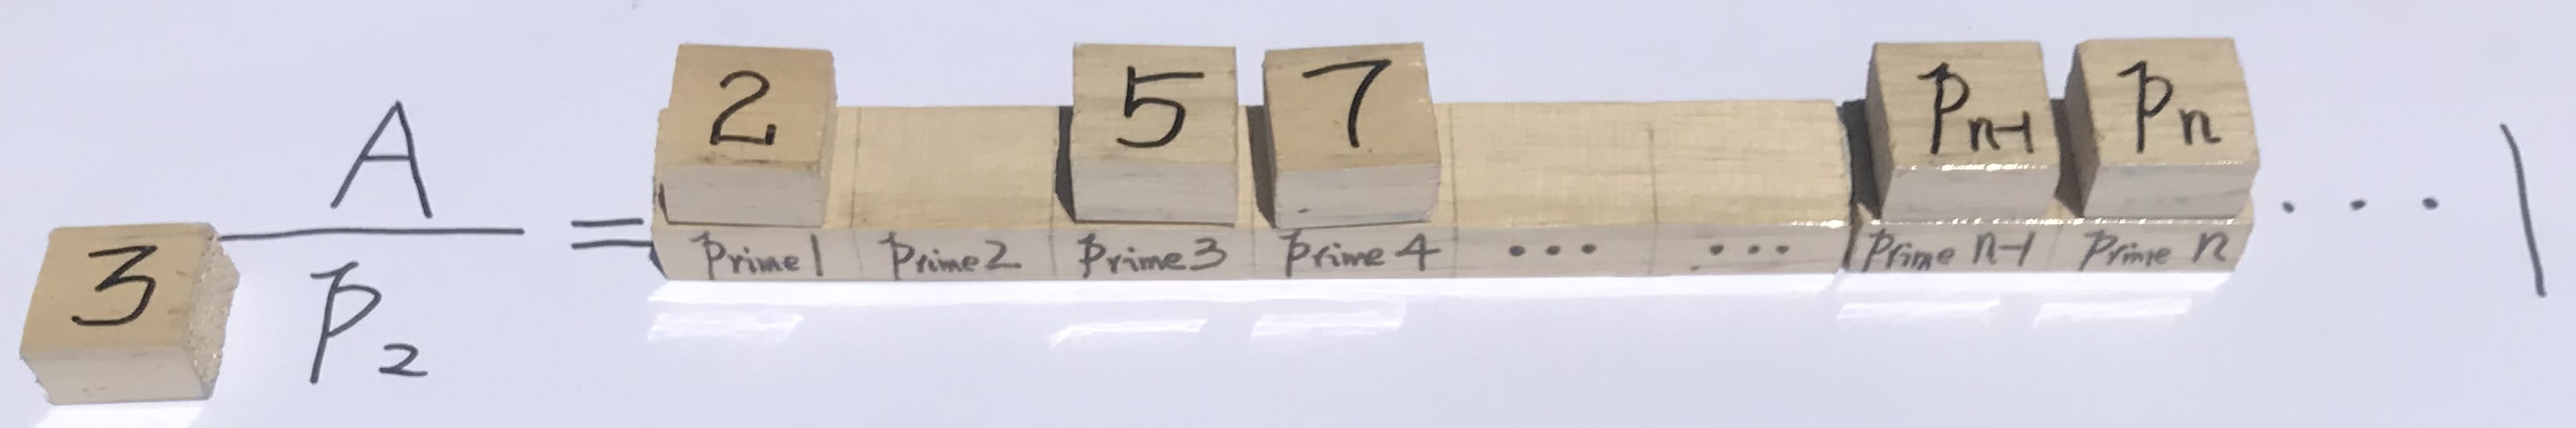 2 5 7 Pn-1 Pn
3 A/P2 = ... |
Prime1 Prime2 Prime3 Prime4 ... ... Prime n-1 Prime n